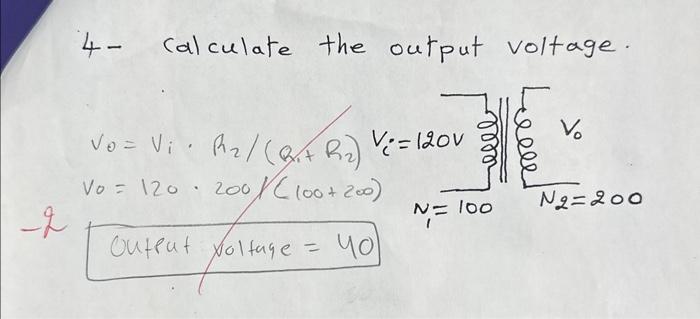 4- Calculate the output voltage.
Vo = Vi . R2/(R1+ R2)
Vi = 120V
Vo
Vo = 120 . 200/(100+200)
N1 = 100
N2 = 200
-2
Output voltage = 40